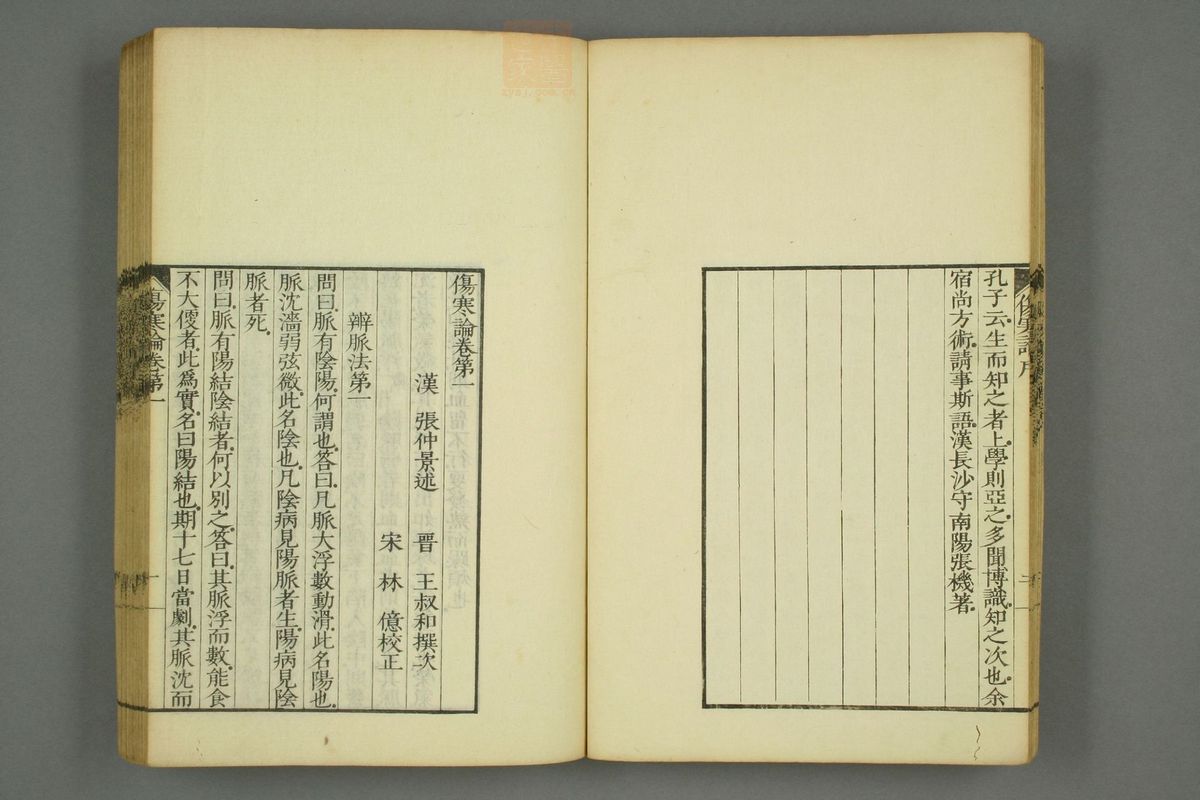 孔子云。生而知之者上。學則亞之。多聞博識。知之次也。余
宿尚方術。請事斯語。漢長沙守南陽張機著。
傷寒論卷第一
漢 張仲景述 晉 王叔和撰次
宋 林 億校正
辨脈法第一
問曰。脈有陰陽。何謂也。答曰。凡脈大浮數動滑。此名陽也。
脈沈濇弱弦微。此名陰也。凡陰病見陽脈者生。陽病見陰
脈者死。
問曰。脈有陽結陰結者。何以別之。答曰。其脈浮而數。能食
不大便者。此爲實。名曰陽結也。期十七日當劇。其脈沈而
傷寒論卷第一
一
zysj.com.cn